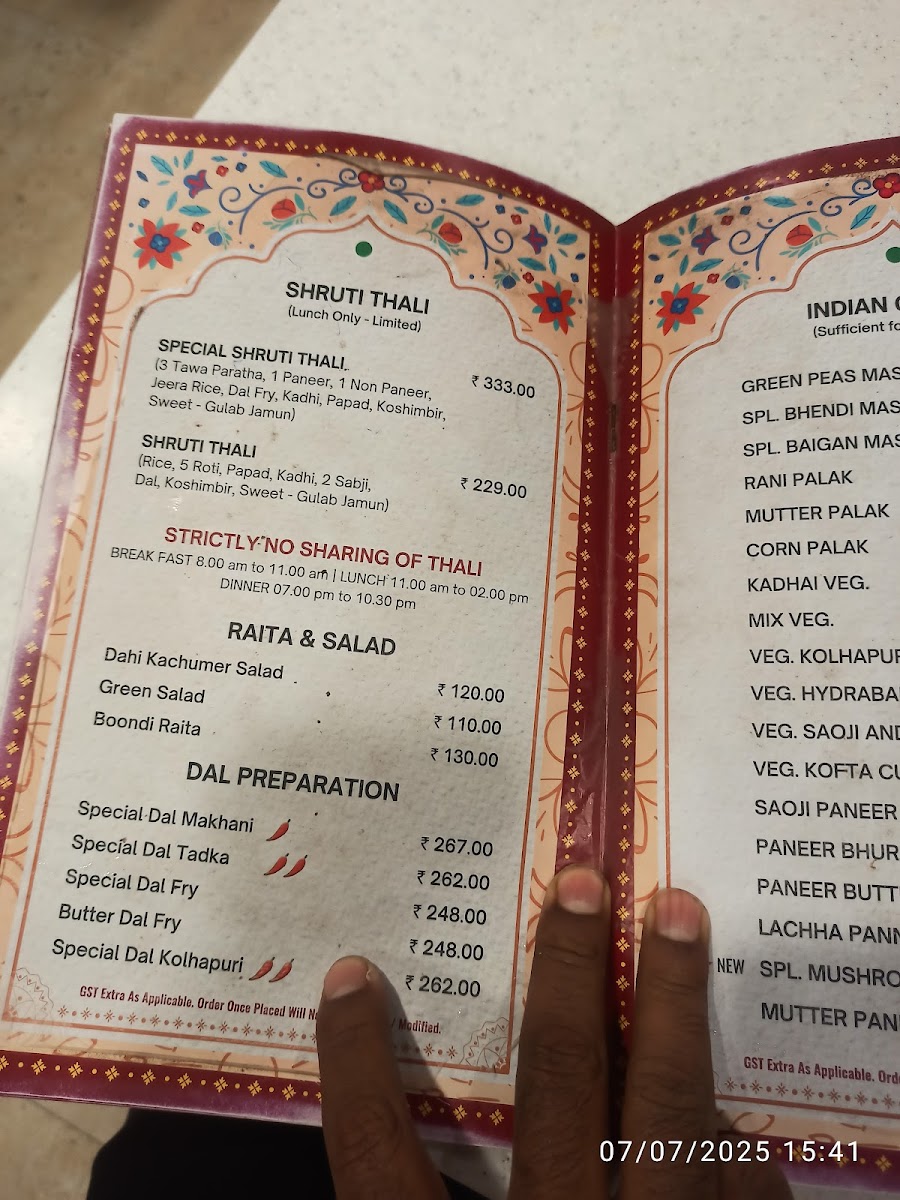 SHRUTI THALI
(Lunch Only - Limited)
SPECIAL SHRUTI THALI
(3 Tawa Paratha, 1 Paneer, 1 Non Paneer,
Jeera Rice, Dal Fry, Kadhi, Papad, Koshimbir,
Sweet - Gulab Jamun)
₹ 333.00
SHRUTI THALI
(Rice, 5 Roti, Papad, Kadhi, 2 Sabji,
Dal, Koshimbir, Sweet - Gulab Jamun)
₹ 229.00
STRICTLY NO SHARING OF THALI
BREAK FAST 8.00 am to 11.00 am | LUNCH 11.00 am to 02.00 pm
DINNER 07.00 pm to 10.30 pm
RAITA & SALAD
Dahi Kachumer Salad ₹ 120.00
Green Salad ₹ 110.00
Boondi Raita ₹ 130.00
DAL PREPARATION
Special Dal Makhani ₹ 267.00
Special Dal Tadka ₹ 262.00
Special Dal Fry ₹ 248.00
Butter Dal Fry ₹ 248.00
Special Dal Kolhapuri ₹ 262.00
GST Extra As Applicable. Order Once Placed Will / Modified.
INDIAN
(Sufficient
GREEN PEAS
SPL. BHENDI
SPL. BAIGAN
RANI PALAK
MUTTER PALAK
CORN PALAK
KADHAI VEG.
MIX VEG.
VEG.
VEG.
VEG. SAOJI
VEG. KOFTA
SAOJI PANEER
PANEER
PANEER
LACHHA
NEW SPL.
MUTTER
GST Extra As Applicable.
07/07/2025 15:41